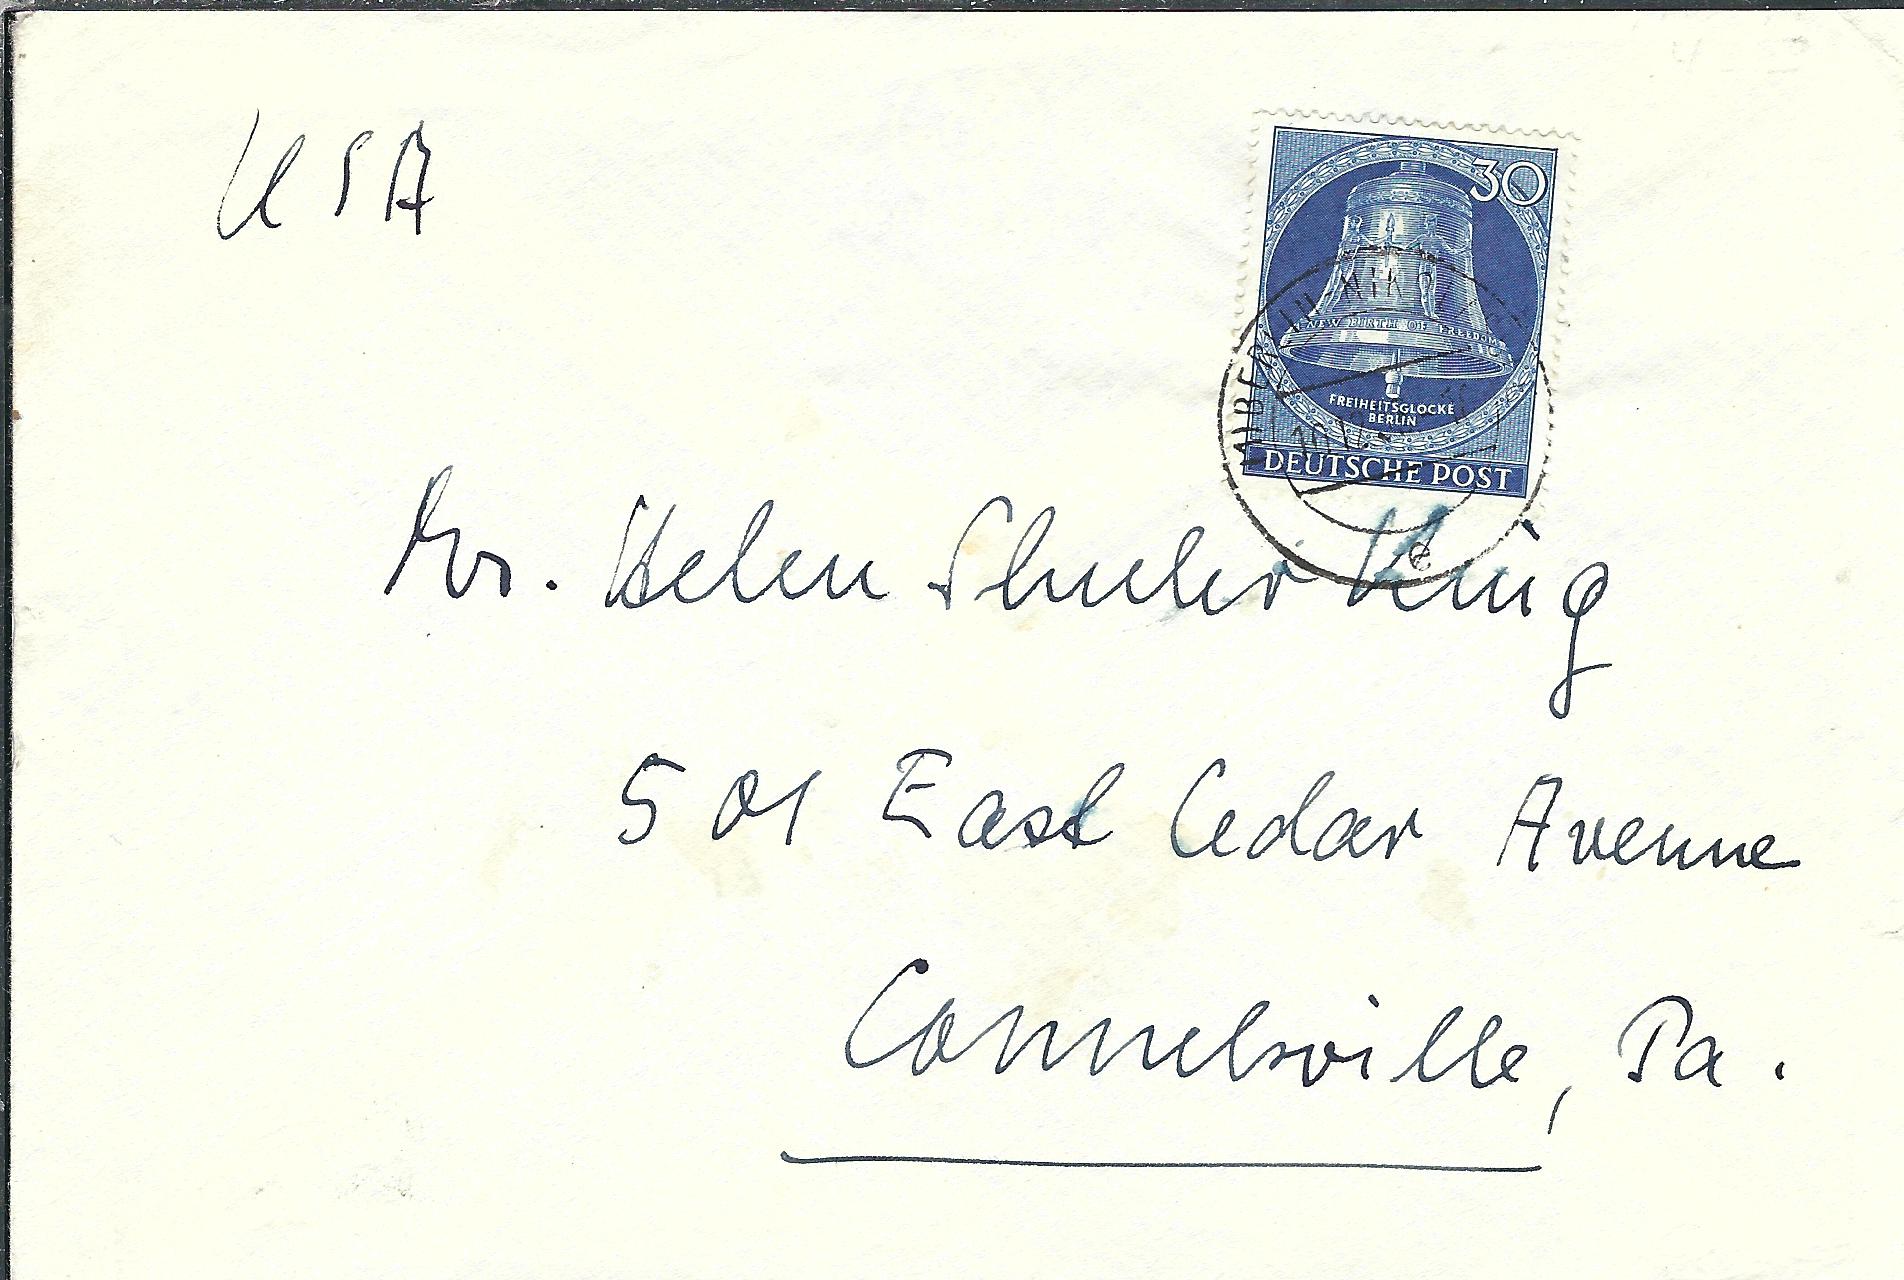 USA
30
NEW BIRTH OF FREEDOM
FREIHEITSGLOCKE
BERLIN
DEUTSCHE POST
e
Helen King
501 East Cedar Avenue
Connelsville, Pa.